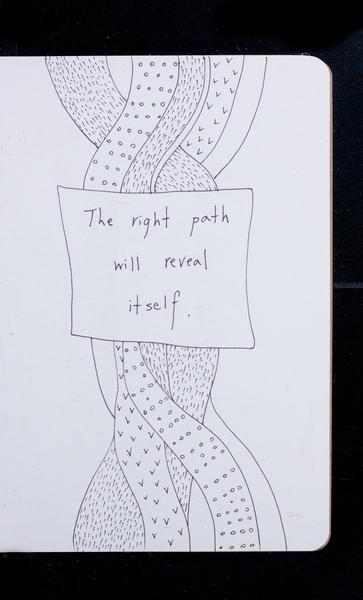 The right path
will reveal
itself.